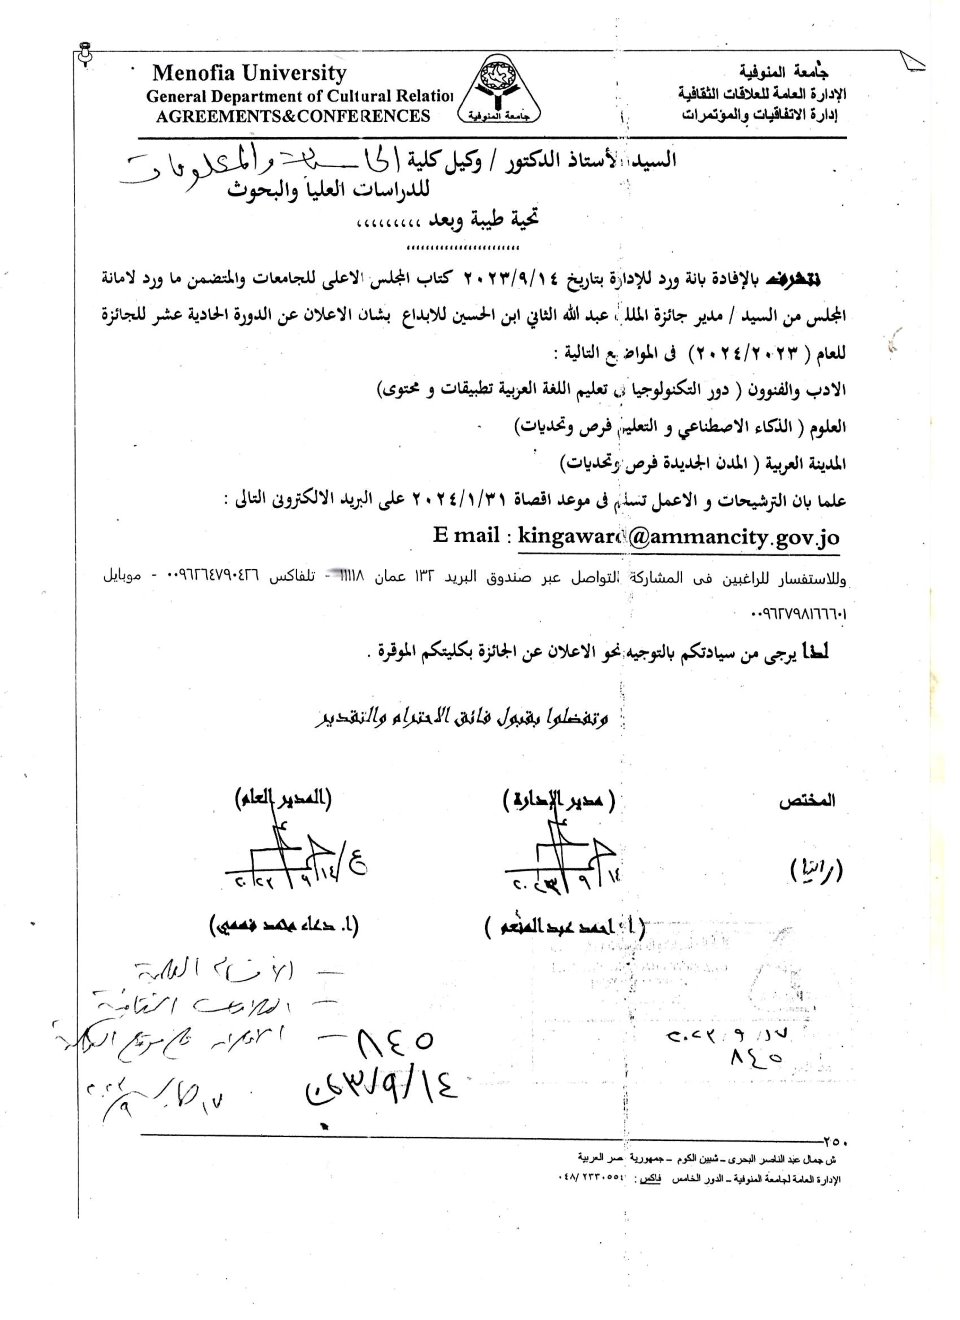 Menofia University
General Department of Cultural Relation
AGREEMENTS&CONFERENCES
جامعة المنوفية
جامعة المنوفية
الإدارة العامة للعلاقات الثقافية
إدارة الاتفاقيات والمؤتمرات
السيد الأستاذ الدكتور / وكيل كلية الحاسبات والمعلومات
للدراسات العليا والبحوث
تحية طيبة وبعد ,,,,,,,,,
نتشرف بالإفادة بانة ورد للإدارة بتاريخ ٢٠٢٣/٩/١٤ كتاب المجلس الاعلى للجامعات والمتضمن ما ورد لامانة
المجلس من السيد / مدير جائزة الملك عبد الله الثاني ابن الحسين للابداع بشان الاعلان عن الدورة الحادية عشر للجائزة
للعام ( ٢٠٢٤/٢٠٢٣) فى المواضيع التالية :
الادب والفنوون ( دور التكنولوجيا فى تعليم اللغة العربية تطبيقات و محتوى)
العلوم ( الذكاء الاصطناعي و التعليم فرص وتحديات)
المدينة العربية ( المدن الجديدة فرص وتحديات)
علما بان الترشيحات و الاعمل تسلم فى موعد اقصاة ٢٠٢٤/١/٣١ على البريد الالكترونى التالى :
E mail : kingaward@ammancity.gov.jo
وللاستفسار للراغبين فى المشاركة التواصل عبر صندوق البريد ١٣٢ عمان ١١١١٨ - تلفاكس ٠٠٩٦٢٦٤٧٩٠٤٢٦ - موبايل
٠٠٩٦٢٧٩٨١٦٦٦٠١
لذا يرجى من سيادتكم بالتوجيه نحو الاعلان عن الجائزة بكليتكم الموقرة .
وتفضلوا بقبول فائق الاحترام والتقدير
المختص ( مدير الإدارة ) (المدير العام)
(رانيا)
٢٠٢٣/٩/١٤
ع/ ٢٠٢٣/٩/١٤
( أ. احمد عبد المنعم ) (ا. دعاء محمد فهمي)
- الأقسام العلمية
- العلاقات الثقافية
- الاعلان على موقع الكلية
٢٠٢٣/٩/١٧
٨٤٥
٨٤٥
٢٠٢٣/٩/١٤
٢٥٠
ش جمال عبد الناصر البحرى – شبين الكوم – جمهورية مصر العربية
الإدارة العامة لجامعة المنوفية – الدور الخامس فاكس : ٠٤٨/٢٢٣٠٥٥٤